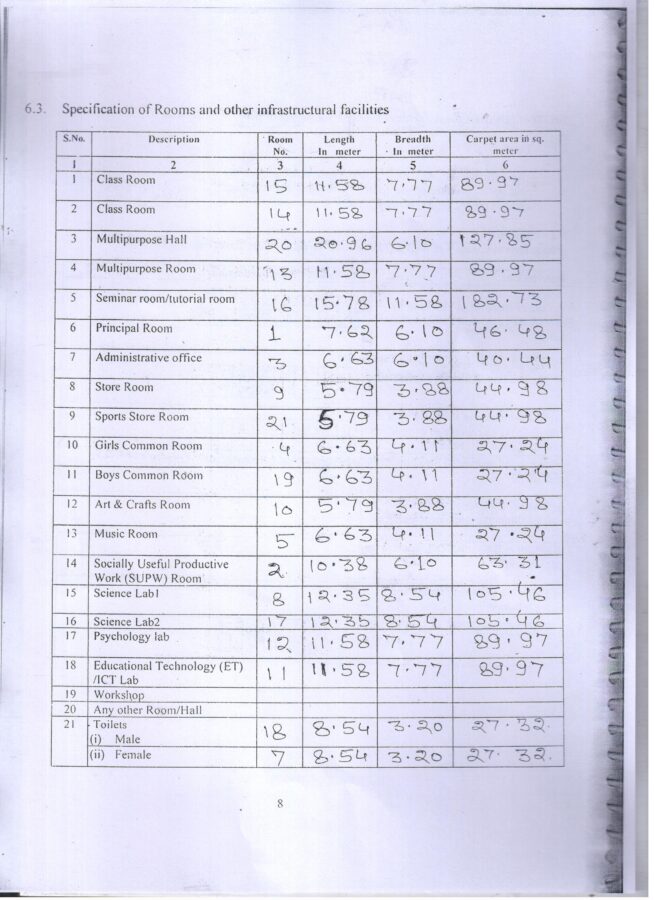 6.3. Specification of Rooms and other infrastructural facilities
S.No. Description Room No. Length In meter Breadth In meter Carpet area in sq. meter
1 2 3 4 5 6
1 Class Room 15 11.58 7.77 89.97
2 Class Room 14 11.58 7.77 89.97
3 Multipurpose Hall 20 20.96 6.10 127.85
4 Multipurpose Room 13 11.58 7.77 89.97
5 Seminar room/tutorial room 16 15.78 11.58 182.73
6 Principal Room 1 7.62 6.10 46.48
7 Administrative office 3 6.63 6.10 40.44
8 Store Room 9 5.79 3.88 44.98
9 Sports Store Room 21 5.79 3.88 44.98
10 Girls Common Room 4 6.63 4.11 27.24
11 Boys Common Room 19 6.63 4.11 27.24
12 Art & Crafts Room 10 5.79 3.88 44.98
13 Music Room 5 6.63 4.11 27.24
14 Socially Useful Productive 2 10.38 6.10 63.31
Work (SUPW) Room
15 Science Lab1 8 12.35 8.54 105.46
16 Science Lab2 17 12.35 8.54 105.46
17 Psychology lab 12 11.58 7.77 89.97
18 Educational Technology (ET) 11 11.58 7.77 89.97
/ICT Lab
19 Workshop
20 Any other Room/Hall
21 Toilets
(i) Male 18 8.54 3.20 27.32
(ii) Female 7 8.54 3.20 27.32
8